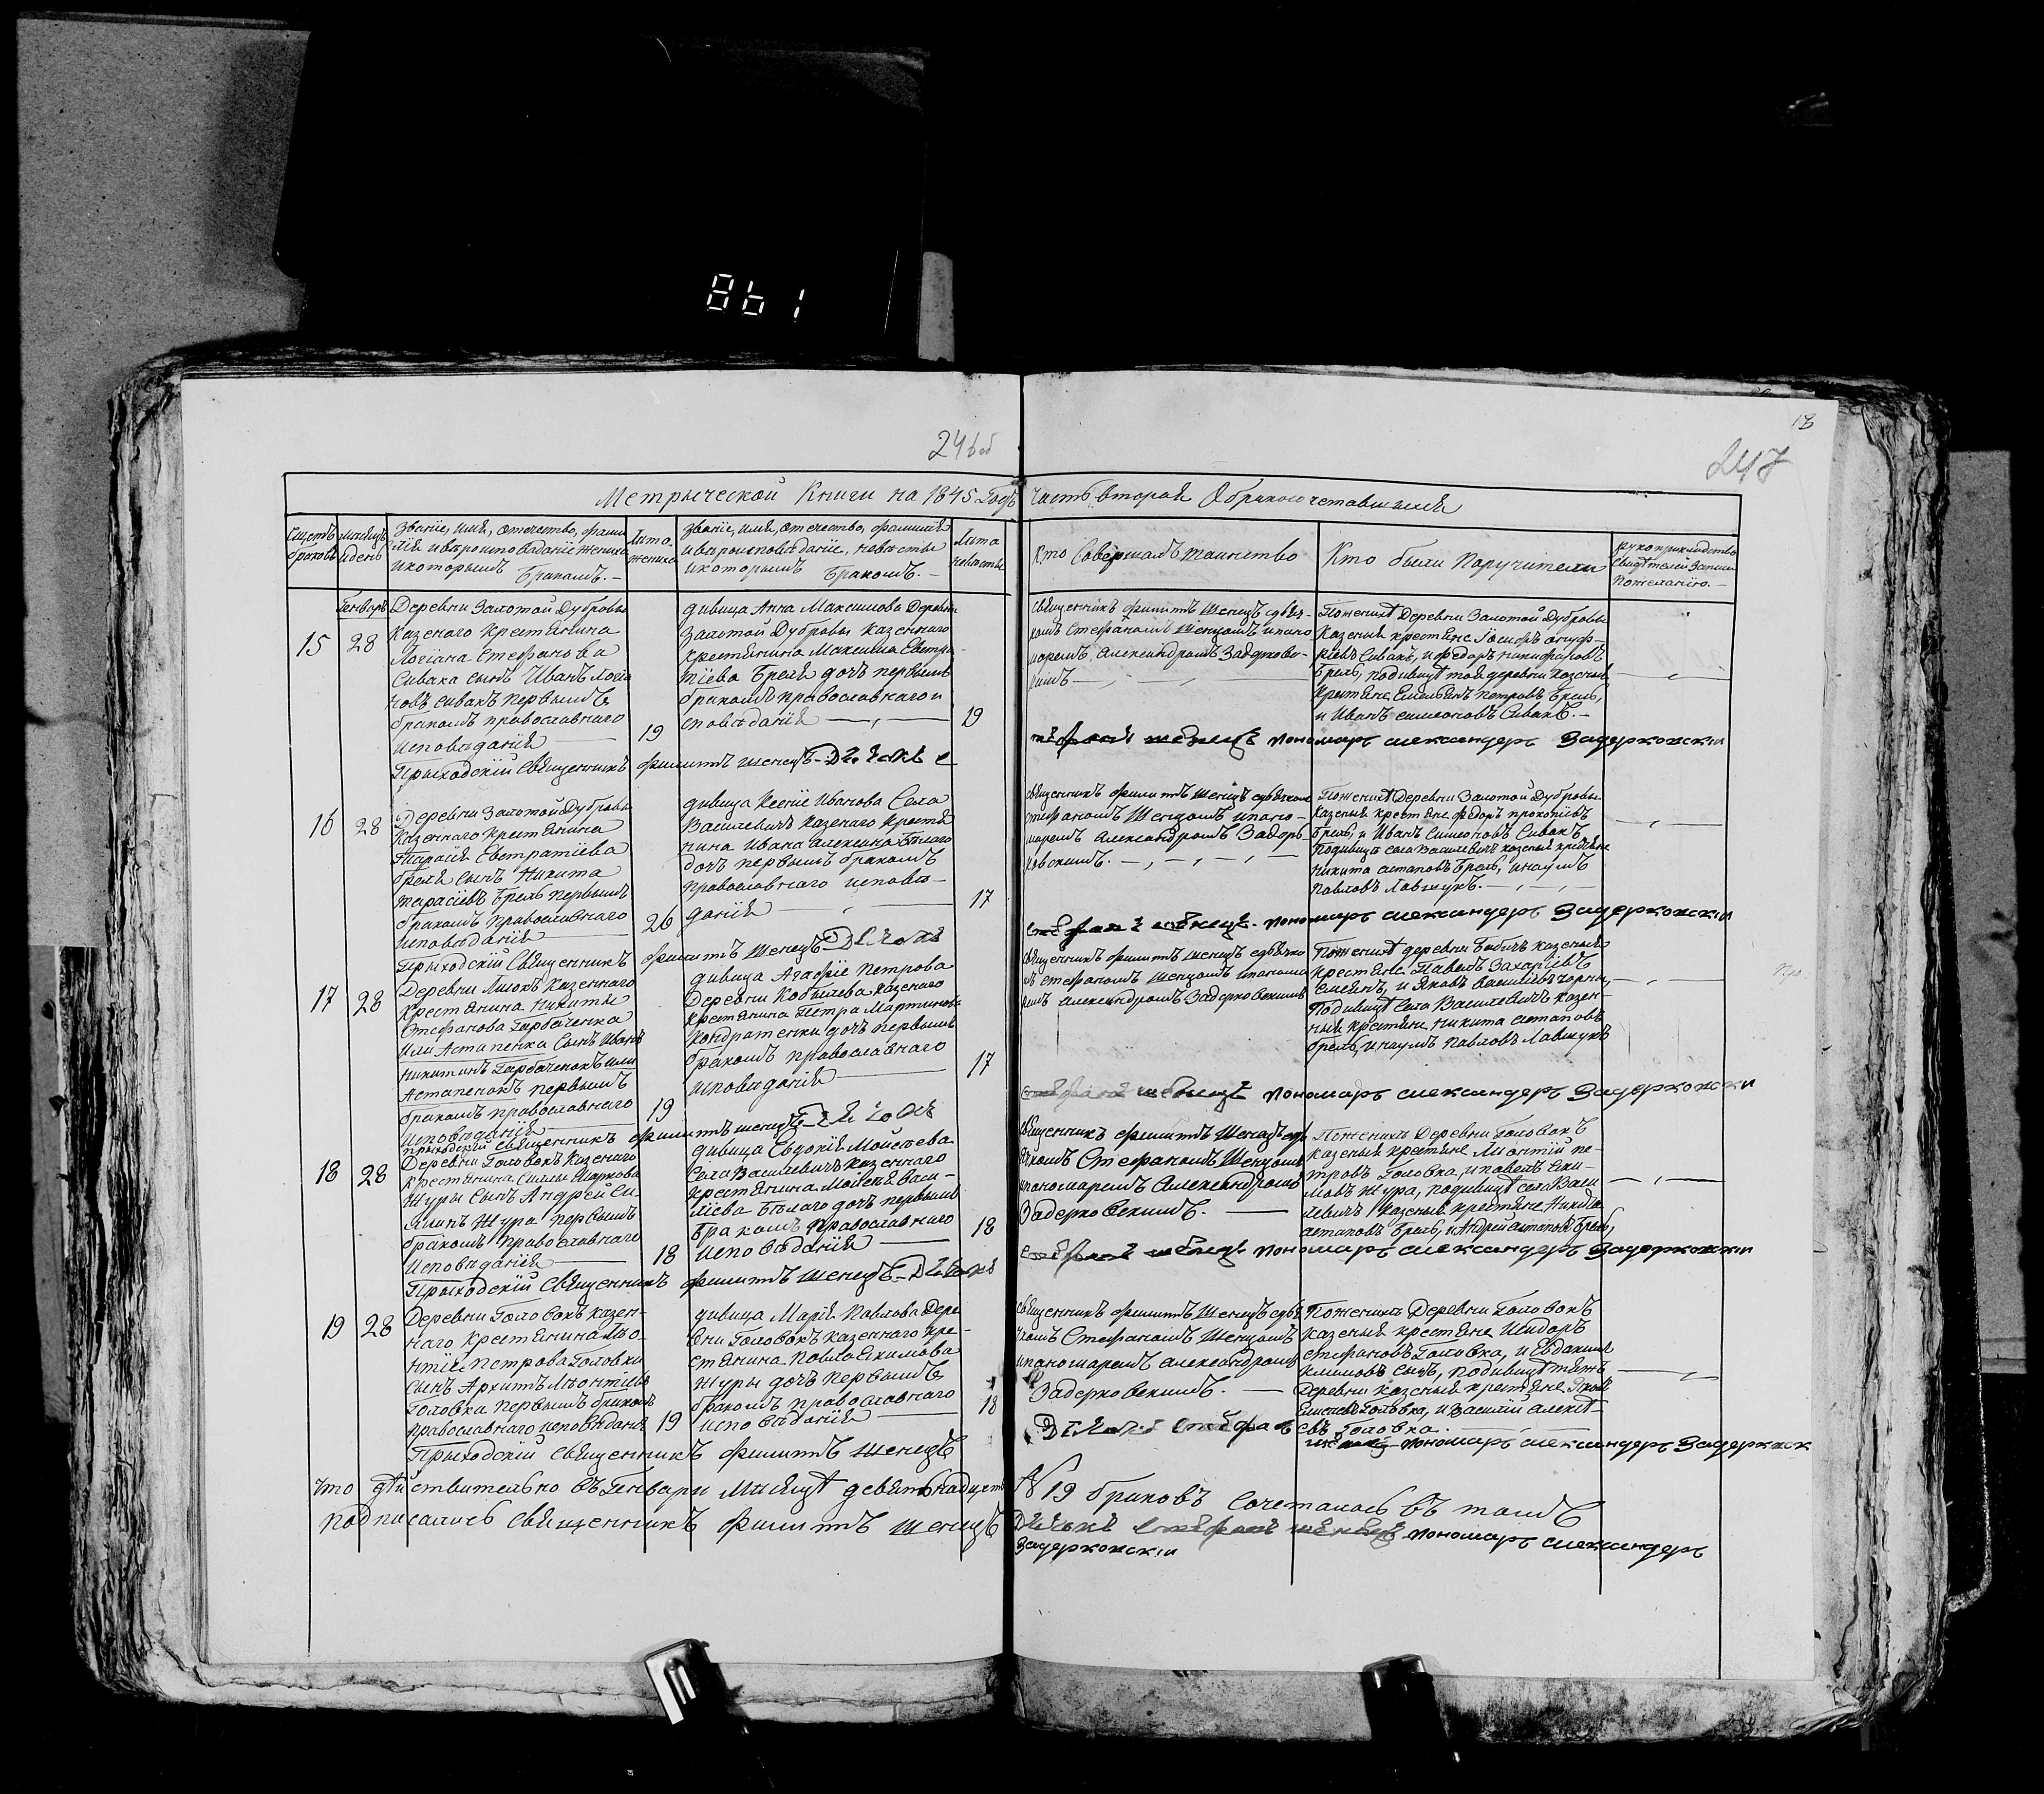 861
246 об
18
247
Метрыческой Книги на 1845 Годъ Часть вторая О бракосочетавшихся
Щетъ браковъ
Месяцъ и день
Званіе, имя, отечество, фами
лія и вероисповеданіе жениха
и которымъ бракомъ. —
Лета
жениха
Званіе, имя, отечество, фамилія
и вероисповеданіе, невесты
и которымъ бракомъ. —
Лета
невесты
Кто Совершалъ таинство
Кто были Поручители
рукоприкладство
свидетелей записи
по желанію. —
Генварь
15
28
Деревни Залотой Дубровы
Казенаго Крестянина
Логіана Стефанова
Сивака сынъ Иванъ Логіа
новъ Сивакъ первымъ
бракомъ православнаго
исповеданія
19
девица Анна Максимова Деревни
Залотой Дубровы Казеннаго
крестянина Максима Евстра
тіева Бреля дочъ первымъ
бракомъ православнаго и
споведанія
19
священникъ филиппъ Шенецъ здья-
комъ Стефаномъ Шенцомъ и пано
маремъ, Александромъ Задерковс-
кимъ
По жениху Деревни Залотой Дубровы
Казеныя крестяне Іосифъ ануф-
ріевъ Сивакъ, и федоръ никифоровъ
Брель, по девицы той деревни Казеныя
Крестяне Емельянъ петровъ Брель,
и Иванъ симеоновъ Сивакъ. —
Прыходскій Священникъ филиппъ Шенецъ Діаконъ
Стефанъ шенецъ пономарь александеръ Задерковскіи
16
28
Деревни Залотой Дубровы
Казеннаго Крестянина
Тарасія Евстратіева
Бреля сынъ Никита
тарасіевъ Брель первымъ
бракомъ Православнаго
исповеданія
26
девица Ксенія Иванова Села
Василевичъ Казенаго Крестя
нина Ивана Алексина Белаго
дочъ первымъ бракомъ
православнаго исповe-
данія
17
священникъ филиппъ Шенецъ здьякомъ
стефаномъ Шенцомъ и пано-
маремъ александромъ Задер
ковскимъ.
По жениху Деревни Залотой Дубровы
Казеныя крестяне федоръ прокопіевъ
Брель, и Иванъ Симеоновъ Сивакъ
По девицы села Василевичъ казеныя крестяне
никита астаповъ Брель, и наумъ
павловъ Лавшукъ.
Прыходскій Священникъ филиппъ Шенецъ Діаконъ
Стефанъ шенецъ. пономарь александеръ Задерковскіи
17
28
Деревни Липовъ Казеннаго
Крестянина Никиты
Стефанова Гарбаченка
или Астапенка Сынъ Иванъ
никитинъ Гарбаченокъ или
Астапенокъ первымъ
бракомъ православнаго
исповеданія
19
девица Агафія Петрова
Деревни Кобылева Казенаго
крестянина Петра Мартинова
Кондратенки дочъ первымъ
бракомъ православнаго
исповеданія
17
священникъ филиппъ Шенецъ здьяко
мъ стефаномъ Шенцомъ и панома
ремъ александромъ Задерковскимъ
По жениху деревни Бабичъ казеныя
крестяне Павелъ Захаріевъ
и Яковъ василіевъ
По девицы Села Василевичъ казен-
ныя крестяне никита астаповъ
брель, и наумъ павловъ Лавшукъ
Прыходскій Священникъ филиппъ шенецъ Діаконъ
Стефанъ шенецъ пономарь александеръ Задерковскіи
18
28
Деревни Головокъ Казенаго
Крестянина Силы Маркова
Журы Сынъ Андрей Си
линъ Жура первымъ
бракомъ православнаго
исповеданія
18
девица Евдокія Мойсеева
Села Василевичъ казеннаго
крестянина Мойсея Васи-
ліева Белаго дочъ первымъ
бракомъ православнаго
исповеданія
18
священникъ филиппъ Шенецъ здь
якомъ Стефаномъ Шенцомъ
и пономаремъ Александромъ
Задерковскимъ.
По женихъ Деревни Головокъ
казеныя крестяне Леонтій пе-
тровъ Головка, и павелъ Еки-
мовъ Жура, по девицы села Васи-
левичъ казеныя крестяне Никита
астаповъ Брель, и Андрей астаповъ Брель,
Прыходскій Священникъ филиппъ Шенецъ Діаконъ
Стефанъ шенецъ пономарь александеръ Задерковскіи
19
28
Деревни Головокъ казен-
наго крестянина Лео-
нтія Петрова Головки
сынъ Архипъ Леонтіевъ
Головка первымъ бракомъ
православнаго исповеданія
19
девица Марія Павлова Дере
вни Головокъ казеннаго кре-
стянина Павла Екимова
Журы дочъ первымъ
бракомъ православнаго
исповеданія
18
священникъ филиппъ Шенецъ здья
комъ Стефаномъ Шенцомъ
и паномаремъ александромъ
Задерковскимъ.
По женихъ Деревни Головокъ
казеныя крестяне Исидоръ
стефановъ Головка, и Евдакимъ
климовъ сычъ, по девицы теяжъ
Деревни казеныя крестяне Яковъ
Головка, и Василій алексе-
евъ Головка.
Прыходскій Священникъ филиппъ Шенецъ
Діаконъ Стефанъ шенецъ пономарь александеръ Задерковск
Что действительно въ Генвары Месяце девятьнадцеть № 19 браковъ Сочеталось въ томъ
подписались Священникъ филиппъ Шенецъ Діаконъ Стефанъ шенецъ пономарь александеръ
Задерковскіи